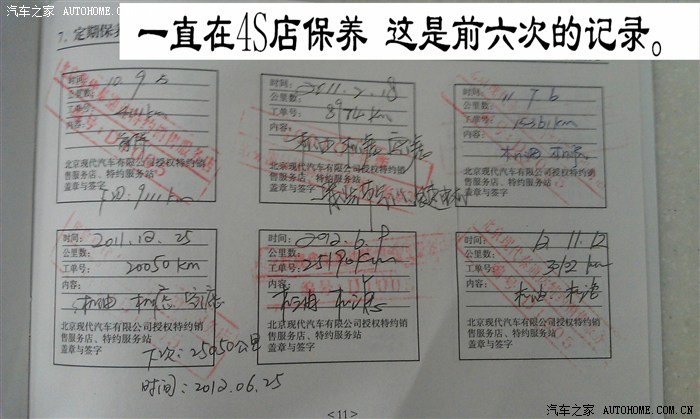 汽车之家 AUTOHOME.COM.CN
一直在4S店保养 这是前六次的记录。
7、定期保养
时间: 10 9 5
公里数:
工单号:
内容:
北京现代汽车有限公司授权特约销
售服务店、特约服务站
盖章与签字
时间: 2011.2.18
公里数: 8974km
工单号:
内容:
北京现代汽车有限公司授权特约销
售服务店、特约服务站
盖章与签字
时间: 11 7 6
公里数:
工单号: 15361km
内容:
机油 机滤
北京现代汽车有限公司授权特约销
售服务店、特约服务站
盖章与签字
时间: 2011.12.25
公里数:
工单号: 20050KM
内容:
机油 机滤 空滤
北京现代汽车有限公司授权特约销
售服务店、特约服务站
盖章与签字
下次:25050公里
时间:2012.06.25
时间: 2012.6.9
公里数:
工单号: 25190Km
内容:
机油 机滤
北京现代汽车有限公司授权特约销
售服务店、特约服务站
盖章与签字
时间: 12 11.12
公里数:
工单号:
内容:
机油 机滤
北京现代汽车有限公司授权特约销
售服务店、特约服务站
盖章与签字
<11>
汽车之家 AUTOHOME.COM.CN